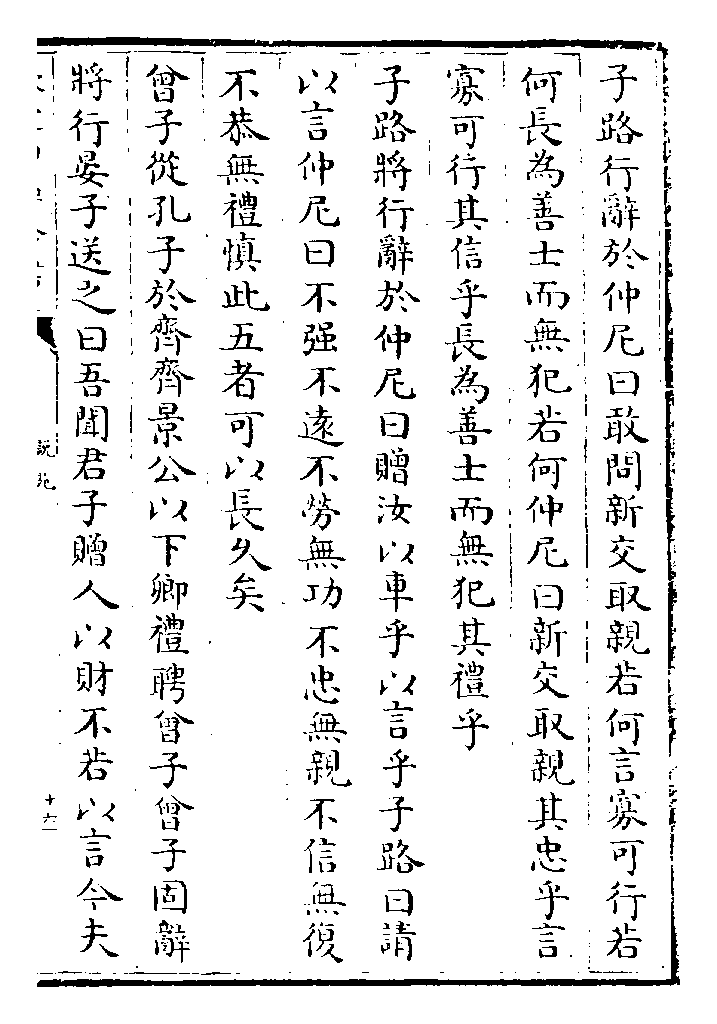 子路行辭於仲尼曰敢問新交取親若何言寡可行若
何長為善士而無犯若何仲尼曰新交取親其忠乎言
寡可行其信乎長為善士而無犯其禮乎
子路將行辭於仲尼曰贈汝以車乎以言乎子路曰請
以言仲尼曰不强不遠不勞無功不忠無親不信無復
不恭無禮慎此五者可以長久矣
曾子從孔子於齊齊景公以下卿禮聘曾子曾子固辭
將行晏子送之曰吾聞君子贈人以財不若以言今夫
說苑
十六